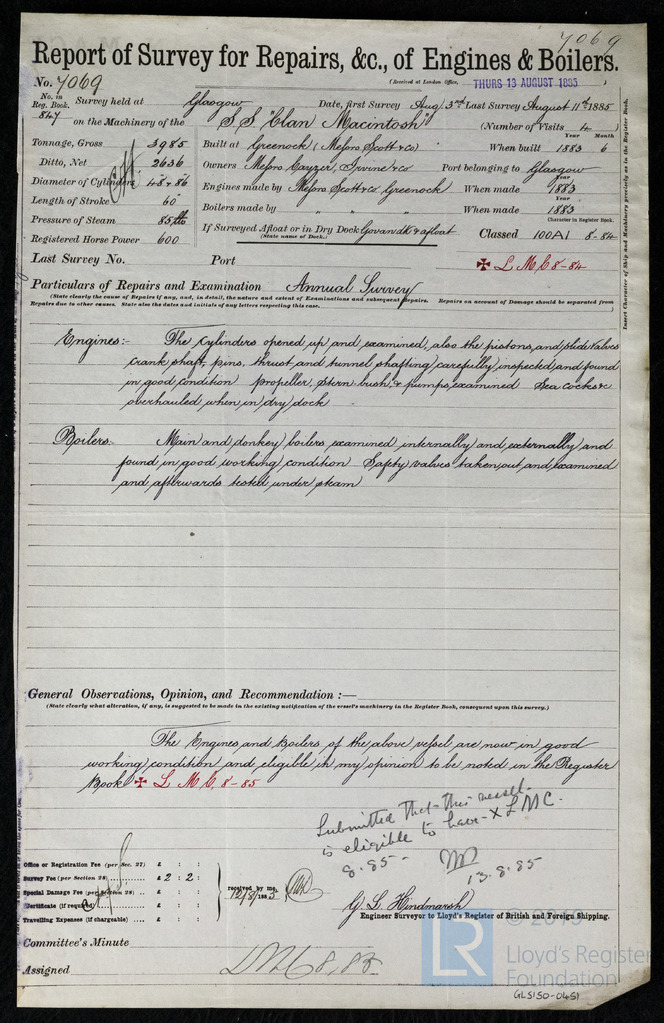 7069
Report of Survey for Repairs, &c., of Engines & Boilers.
No. 7069
(Received at London Office, THURS 13 AUGUST 1885
No. in Reg. Book. 847
Survey held at Glasgow Date, first Survey Aug 3rd Last Survey August 11th 1885
on the Machinery of the S.S. "Clan Macintosh" (Number of Visits 4
Tonnage, Gross 3985
Ditto, Net 2636
Diameter of Cylinders 48 & 86
Length of Stroke 60"
Pressure of Steam 85 lb
Registered Horse Power 600
Built at Greenock (Messrs Scott & Co) When built Year 1883 Month 6
Owners Messrs Cayzer, Irvine & Co Port belonging to Glasgow
Engines made by Messrs Scott & Co Greenock When made Year 1883
Boilers made by " " " When made Year 1883
If Surveyed Afloat or in Dry Dock Govan dk & afloat
(State name of Dock.)
Character in Register Book.
Classed 100A1 8-84
Last Survey No. Port
✠ L M C 8-84
Insert Character of Ship and Machinery precisely as in the Register Book.
Particulars of Repairs and Examination Annual Survey
(State clearly the cause of Repairs if any, and, in detail, the nature and extent of Examinations and subsequent Repairs. Repairs on account of Damage should be separated from
Repairs due to other causes. State also the dates and initials of any letters respecting this case.)
Engines:- The Cylinders opened up and examined, also the pistons, and slide valves
crank shaft, pins, thrust and tunnel shafting carefully inspected and found
in good condition propeller, stern bush, & pumps examined Sea cocks &c
overhauled when in dry dock
Boilers:- Main and donkey boilers examined internally and externally and
found in good working condition Safety valves taken out and examined
and afterwards tested under steam
General Observations, Opinion, and Recommendation :—
(State clearly what alteration, if any, is suggested to be made in the existing notification of the vessel's machinery in the Register Book, consequent upon this survey.)
The Engines and Boilers of the above vessel are now in good
working condition and eligible in my opinion to be noted in the Register
Book ✠ L M C, 8-85
Submitted that this vessel
is eligible to have X LMC.
8.85-
13.8.85
Office or Registration Fee (per Sec. 27) £ : :
Survey Fee (per Section 28) £ 2 : 2 :
Special Damage Fee (per Section 28) £ : :
Certificate (if required) £ : :
Travelling Expenses (if chargeable) £ : :
received by me,
12/8/1885
G. L. Hindmarsh
Engineer Surveyor to Lloyd's Register of British and Foreign Shipping.
Committee's Minute
Assigned LMC 8,85
LR
© 2019
Lloyd's Register
Foundation
GLS150-0451